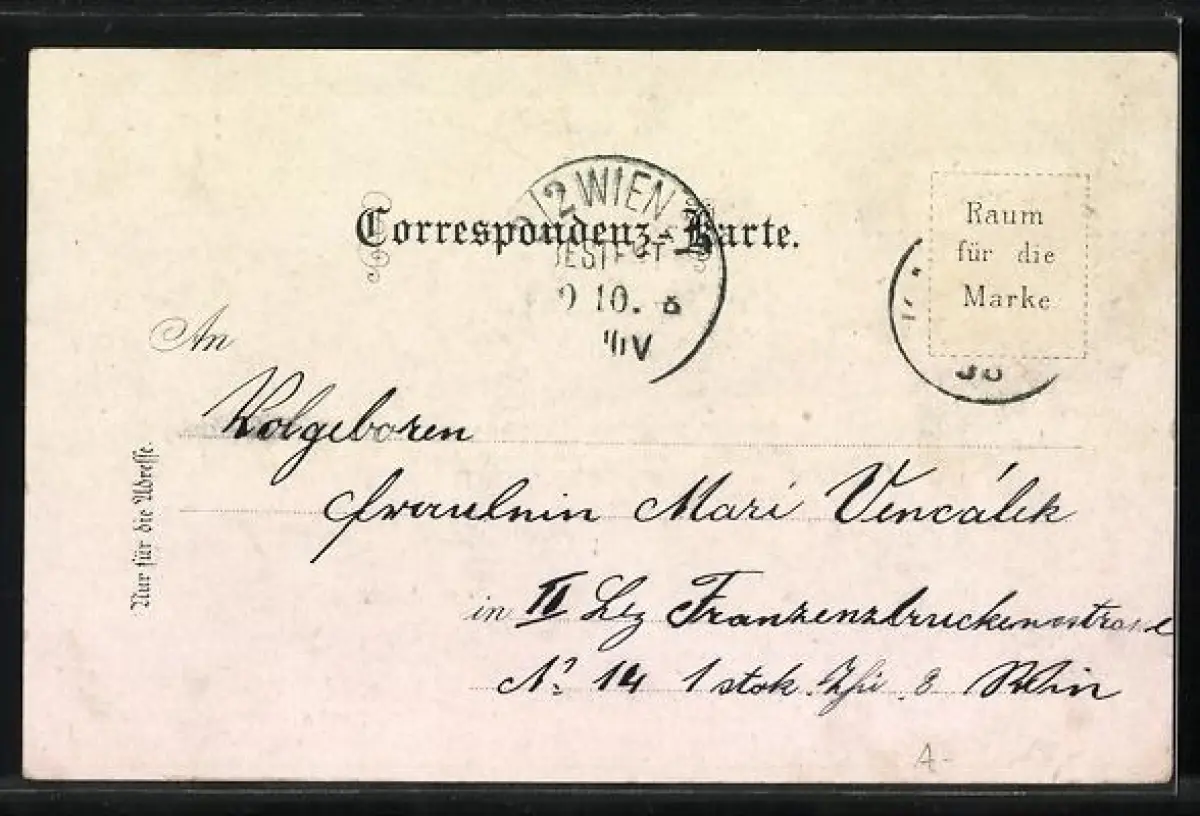 Correspondenz-Karte.
2/2 WIEN
BESTELLT
10.
Raum
für die
Marke
An
Wolgeboren
Fraeulnin Mari Vencálek
in II Bez Franzenzbruckenstrasse
Nº 14 1 stok. Thi 8 Wein
Nur für die Adresse.
A-